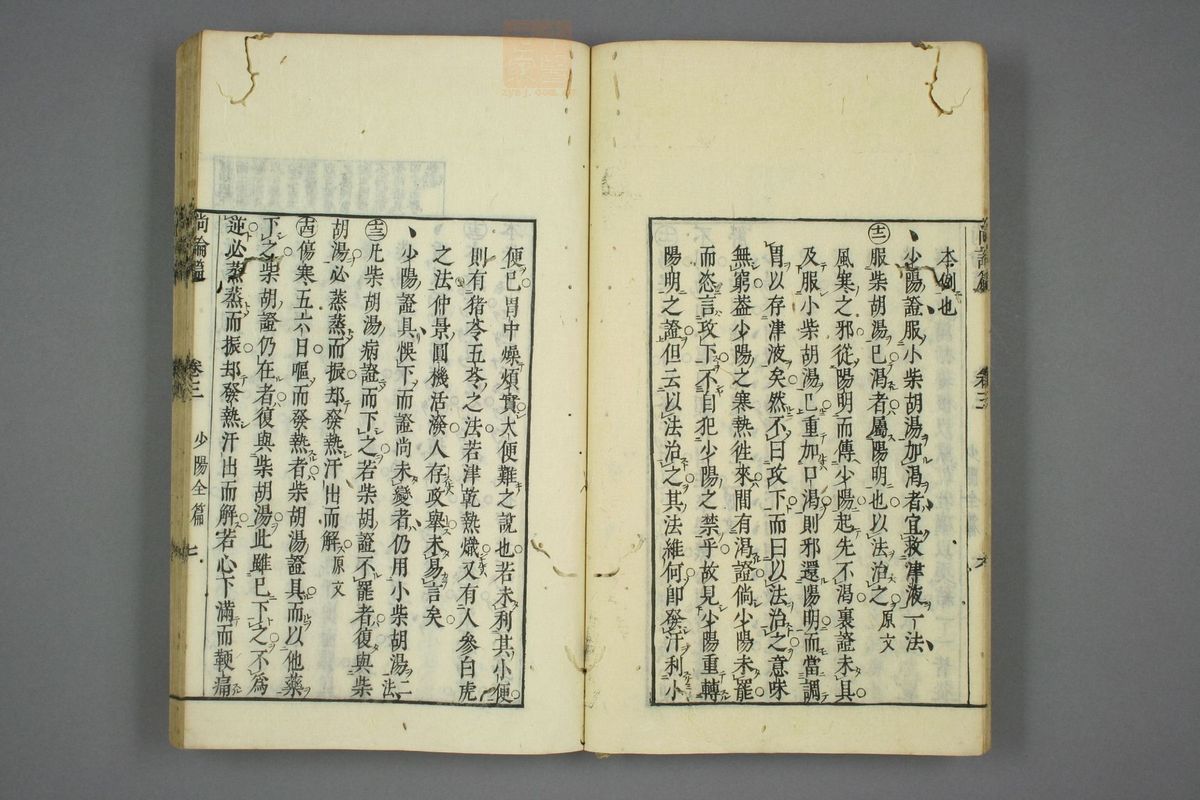 本例也
少陽證服小柴胡湯加渴者宜救津液一法
十二 服柴胡湯已渴者屬陽明也以法治之原文
風寒之邪從陽明而傳少陽起先不渴裏證未具
及服小柴胡湯已重加口渴則邪還陽明而當調
胃以存津液矣然不曰攻下而曰以法治之意味
無窮葢少陽之寒熱徃來間有渴證倘少陽未罷
而恣言攻下不自犯少陽之禁乎故見少陽重轉
陽明之證但云以法治之其法維何卽發汗利小
便已胃中燥煩實大便難之說也若未利其小便
則有猪苓五苓之法若津乾熱熾又有人參白虎
之法仲景圓機活潑人存政舉未易言矣
少陽證具悞下而證尚未變者仍用小柴胡湯二法
十三 凡柴胡湯病證而下之若柴胡證不罷者復與柴
胡湯必蒸蒸而振却發熱汗出而解原文
十四 傷寒五六日嘔而發熱者柴胡湯證具而以他藥
下之柴胡證仍在者復與柴胡湯此雖已下之不爲
逆必蒸蒸而振却發熱汗出而解若心下滿而鞕痛
尚論篇 卷三 少陽全篇 七